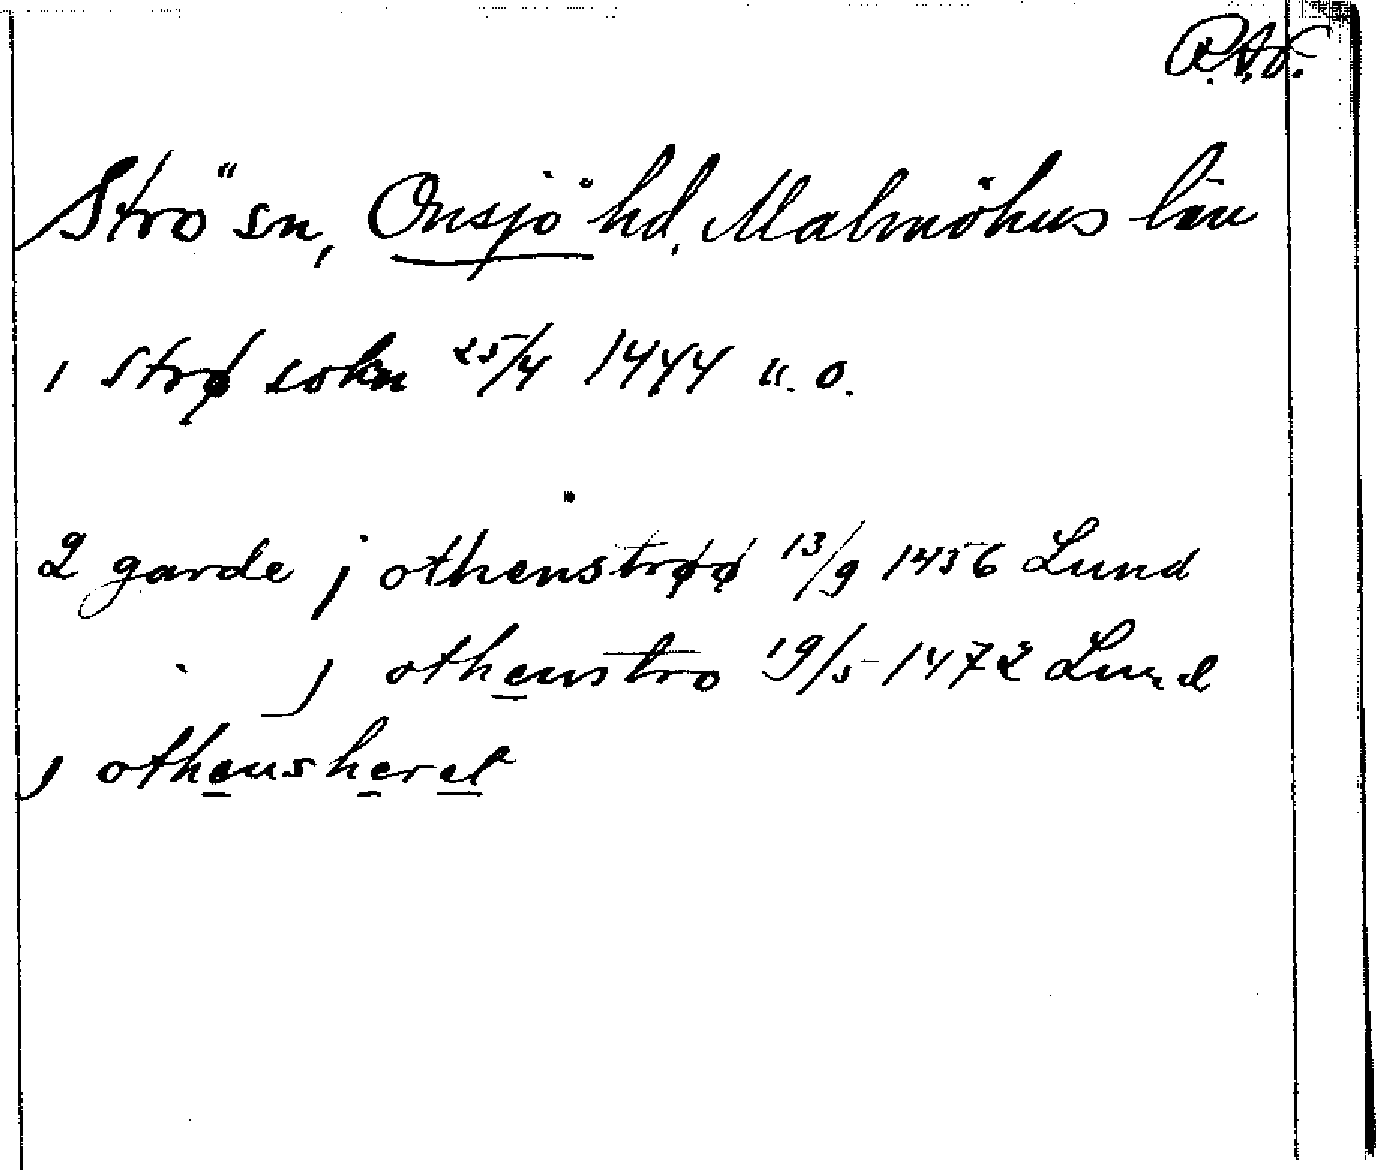 R.A.
Strö sn, Onsjö hd, Malmöhus län
i strø sokn 25/4 1444 u. o.
2 garde j othenstrøø 13/9 1456 Lund
j othenstro 19/5 1472 Lund
j othensheret